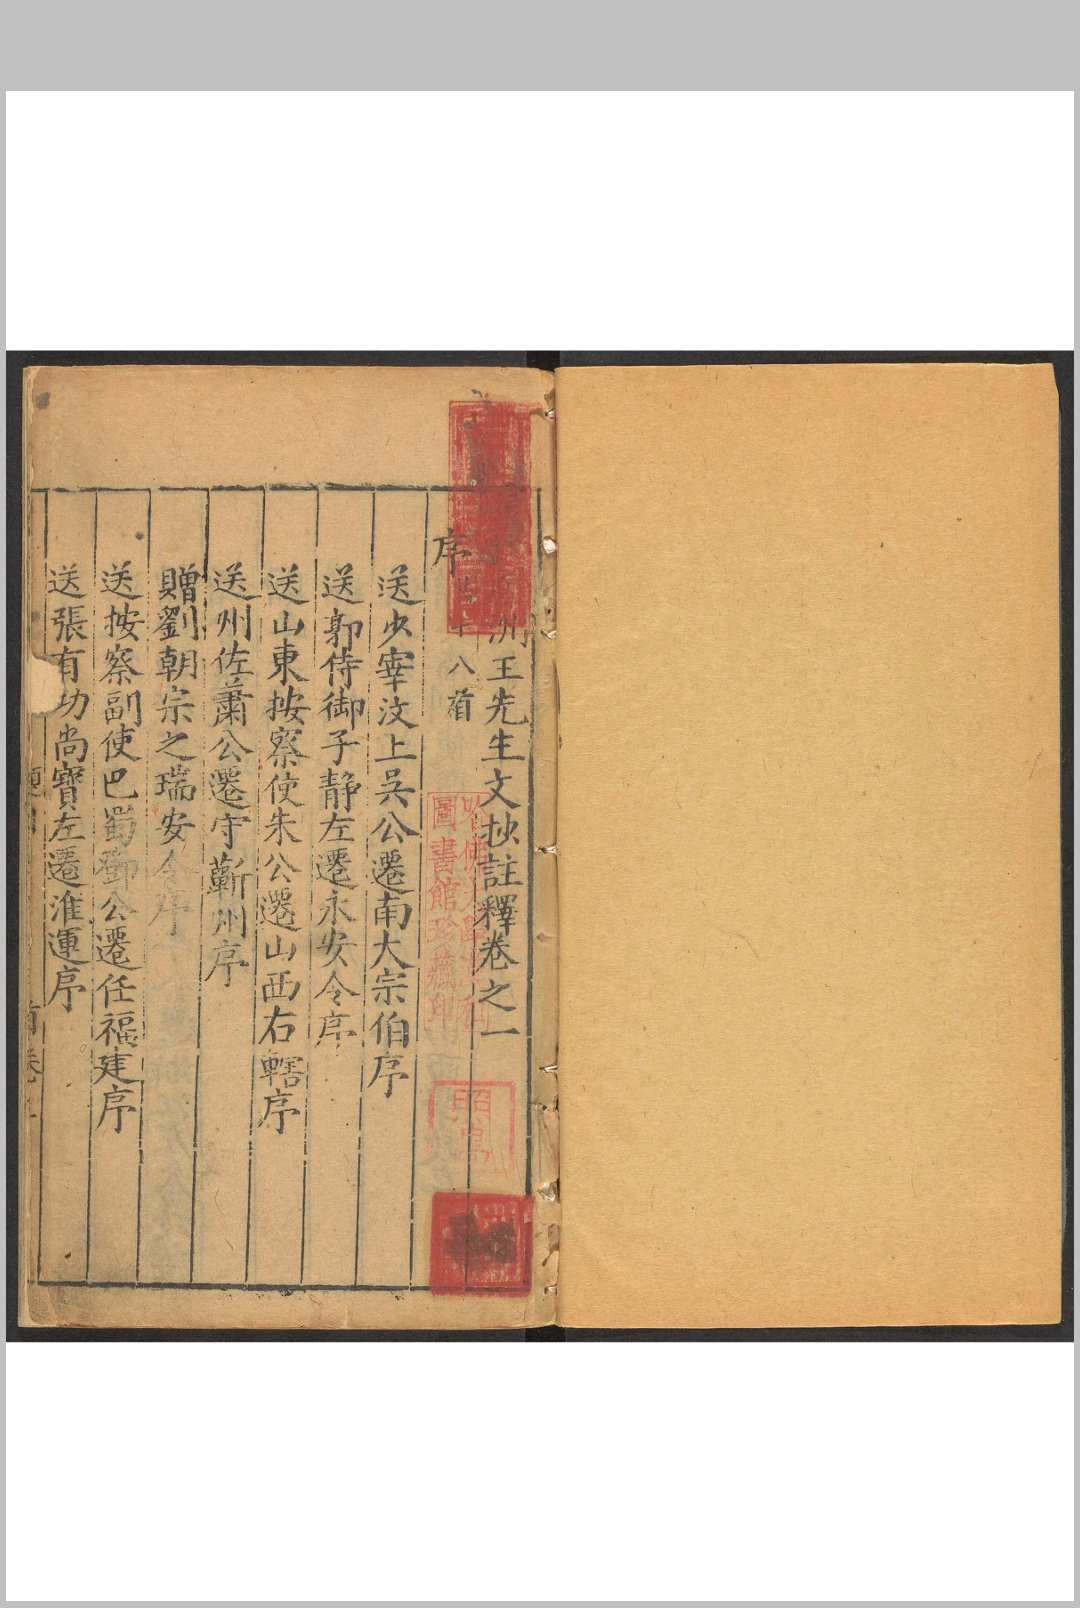 洲王先生文抄註釋卷之一
序
十八首
送少宰汶上吳公遷南大宗伯序
送郭侍御子靜左遷永安令序
送山東按察使朱公遷山西右轄序
送州佐蕭公遷守蘄州序
贈劉朝宗之瑞安令序
送按察副使巴蜀鄧公遷任福建序
送張有功尚寶左遷淮運序
哈佛大學
圖書館珍藏印